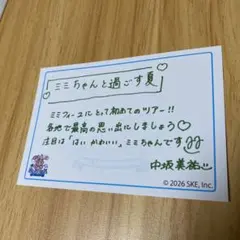 ミミちゃんと過ごす夏
ミミフィーユにとって初めてのツアー!!
各地で最高の思い出にしましょう♡
注目は「はい かわいい」ミミちゃんです
中坂美祐
© 2026 SKE, Inc.